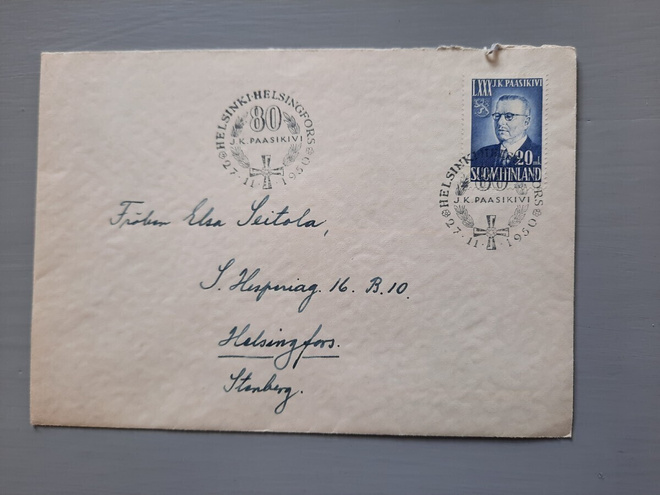 HELSINKI·HELSINGFORS
80
J.K. PAASIKIVI
27·11·1950
LXXX J.K. PAASIKIVI
20 mk
SUOMI FINLAND
HELSINKI·HELSINGFORS
80
J.K. PAASIKIVI
27·11·1950
Fröken Elsa Seitola,
S. Hesperiag. 16. B. 10.
Helsingfors.
Stenberg.